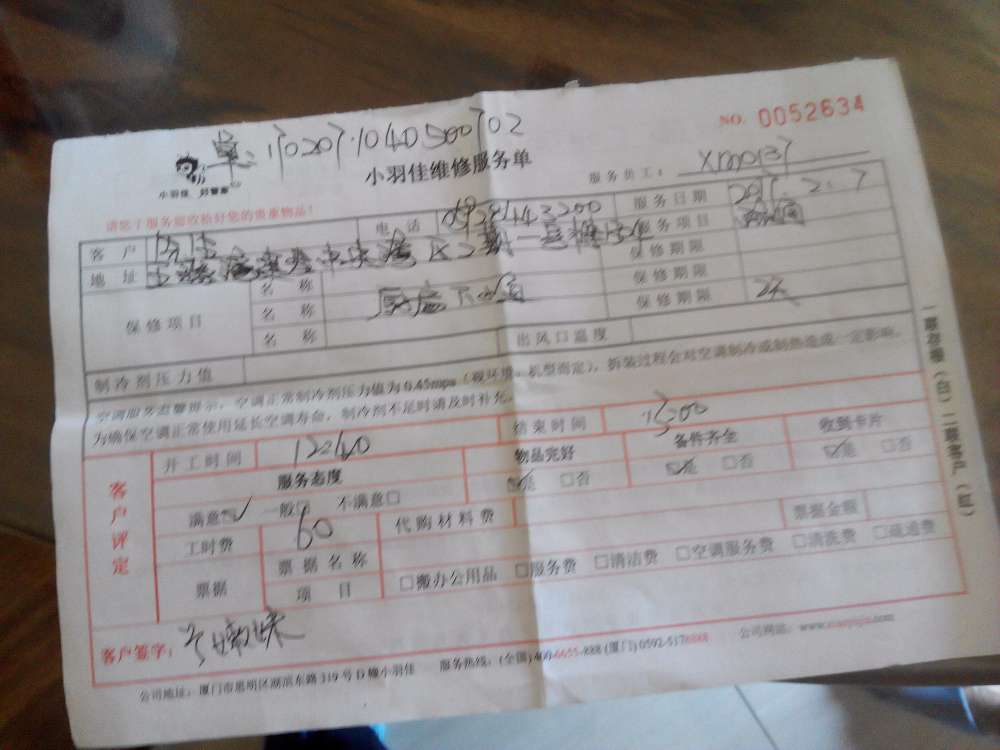 NO. 0052634
单:
小羽佳 好管家
小羽佳维修服务单
服务员工: xm0137
请您于服务前收拾好您的贵重物品!
客户
电话
服务日期 2017.2.7
地址
服务项目
保修项目
名称
保修期限
名称
保修期限
名称
保修期限
制冷剂压力值
出风口温度
空调服务温馨提示,空调正常制冷剂压力值为0.45mpa(视环境、机型而定),拆装过程会对空调制冷或制热造成一定影响。
为确保空调正常使用延长空调寿命,制冷剂不足时请及时补充。
客户评定
开工时间 12:40
结束时间 15:00
服务态度
物品完好
备件齐全
收到卡片
满意☑ 一般□ 不满意□
☑是 □否
☑是 □否
☑是 □否
工时费 60
代购材料费
票据金额
票据
票据名称
项目
□搬办公用品 □服务费 □清洁费 □空调服务费 □清洗费 □疏通费
客户签字:
公司地址:厦门市思明区湖滨东路319号D幢小羽佳
服务热线:(全国)400-6655-888 (厦门)0592-5178888
公司网站:www.xiaoyujia.com
一联存根(白)二联客户(红)